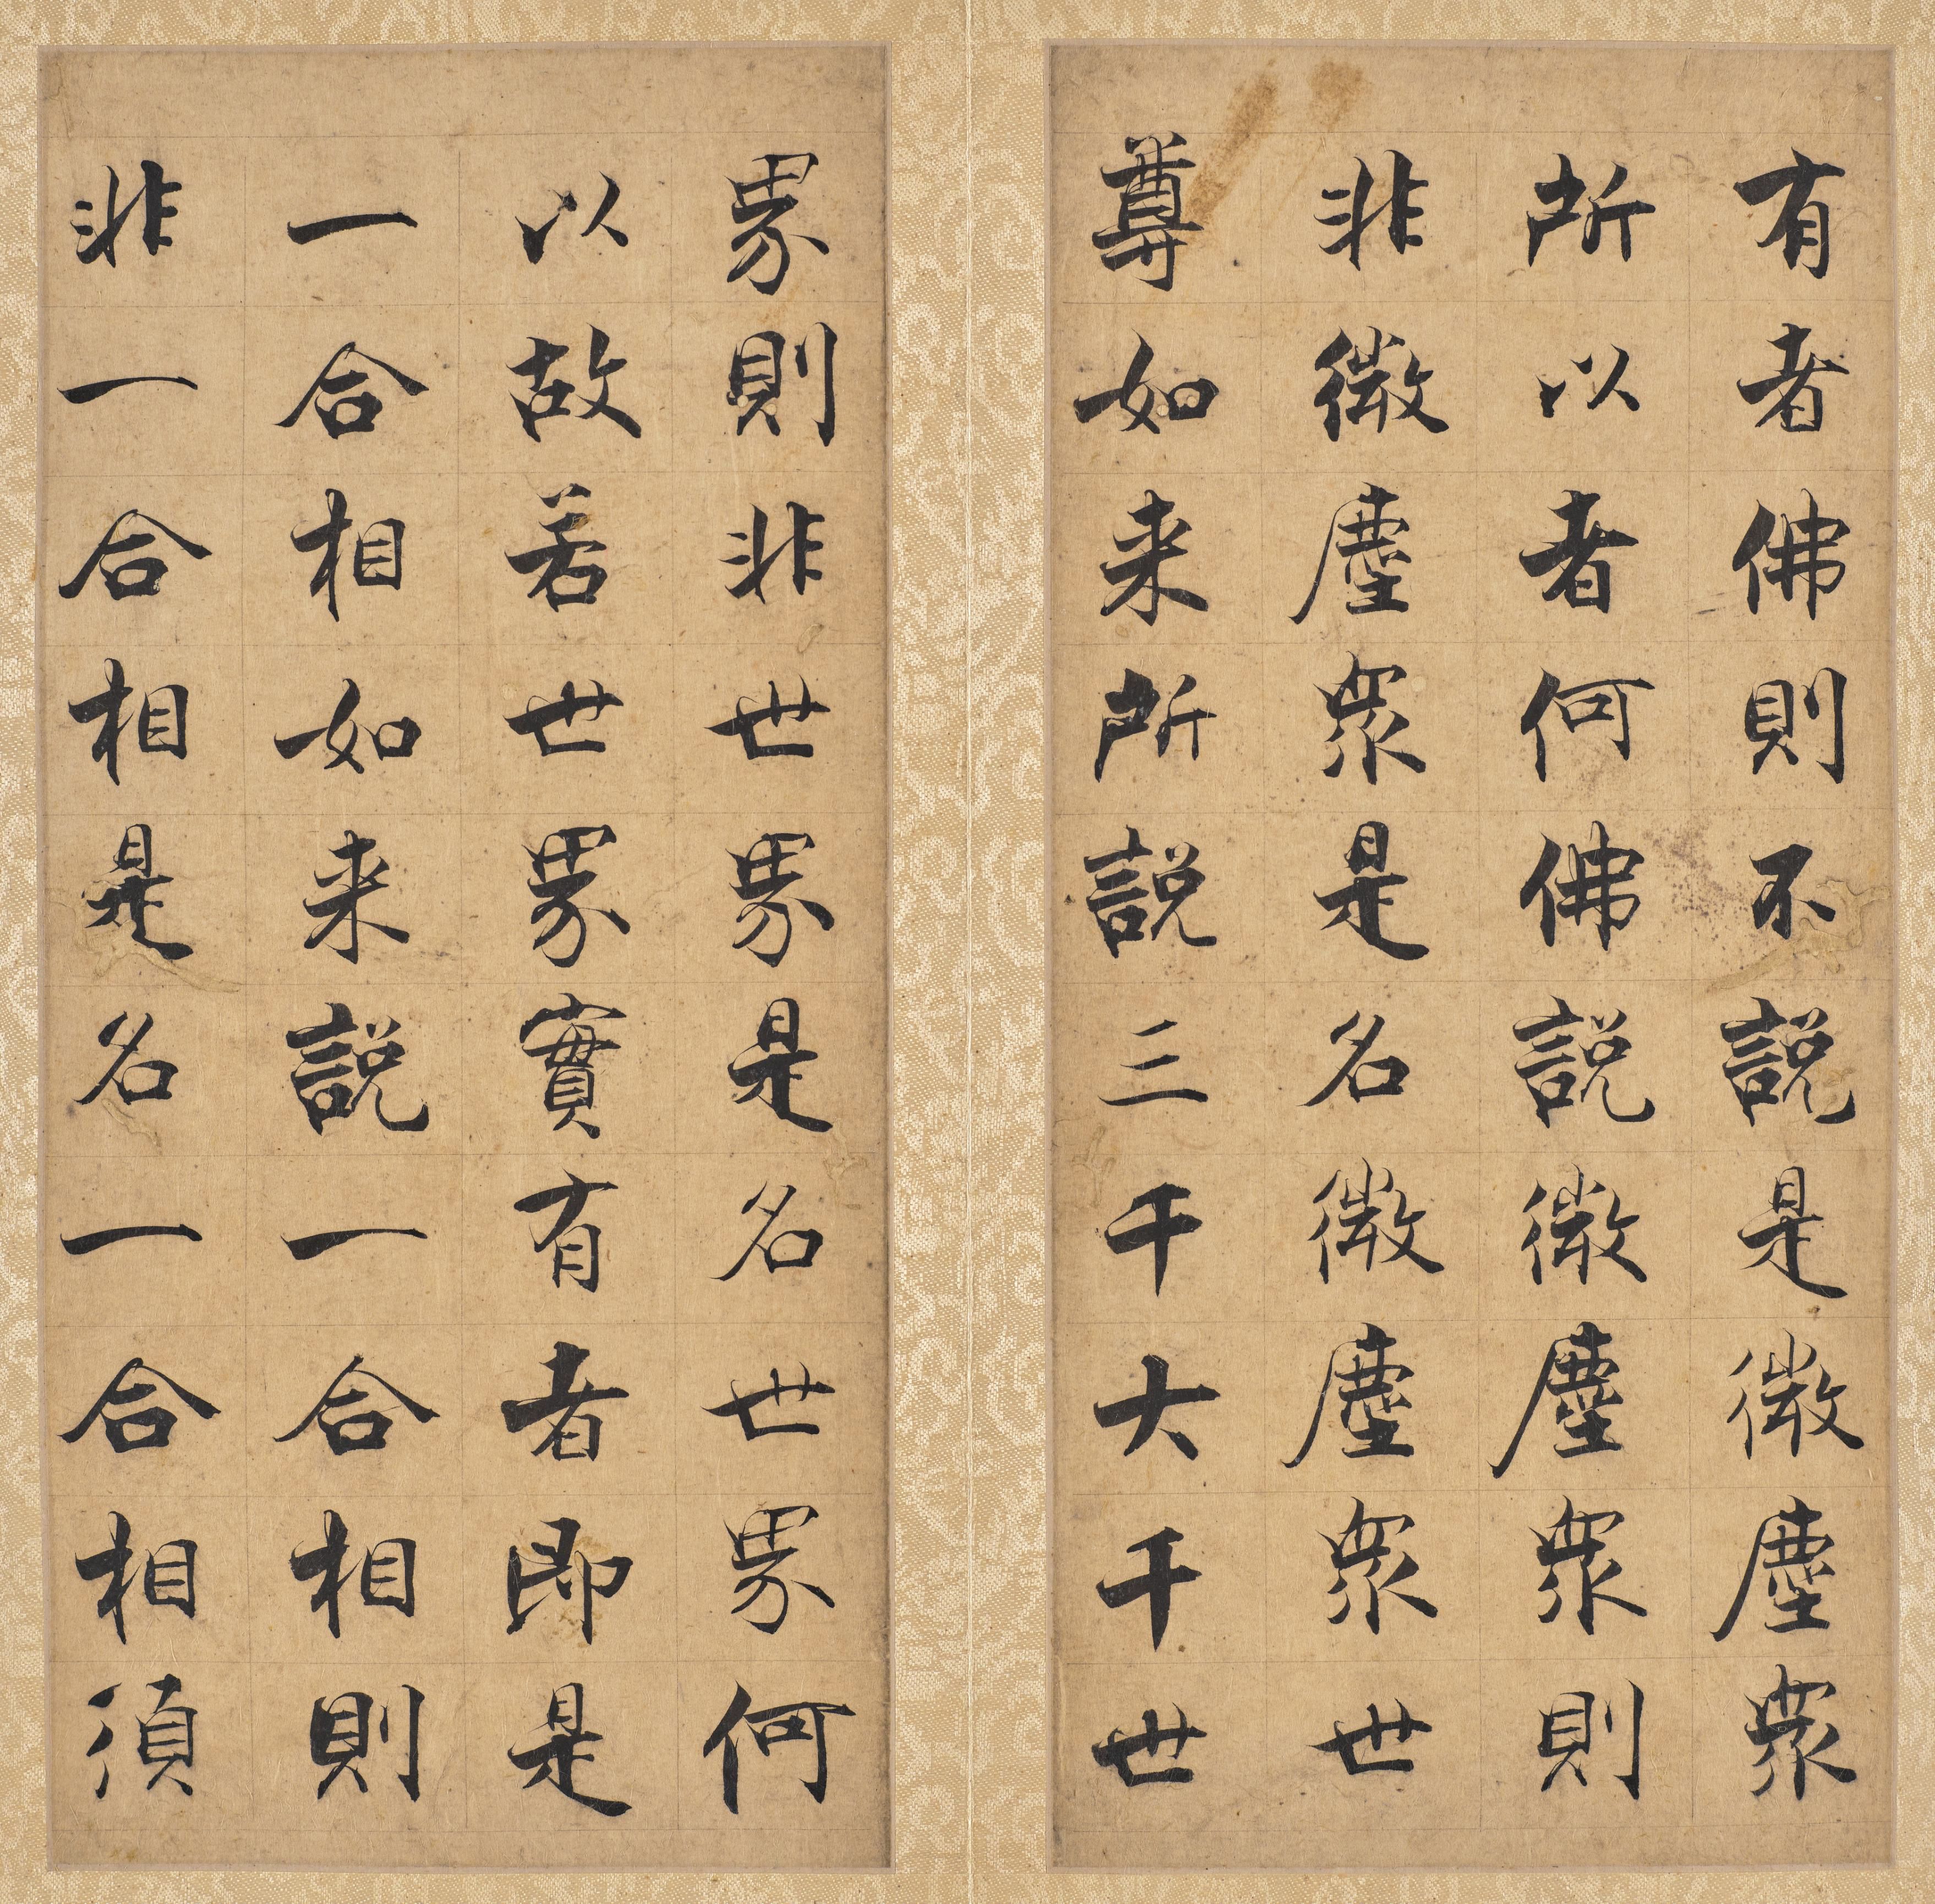 有者佛則不說是微塵衆
所以者何佛說微塵衆則
非微塵衆是名微塵衆世
尊如来所說三千大千世
界則非世界是名世界何
以故若世界實有者即是
一合相如来說一合相則
非一合相是名一合相須